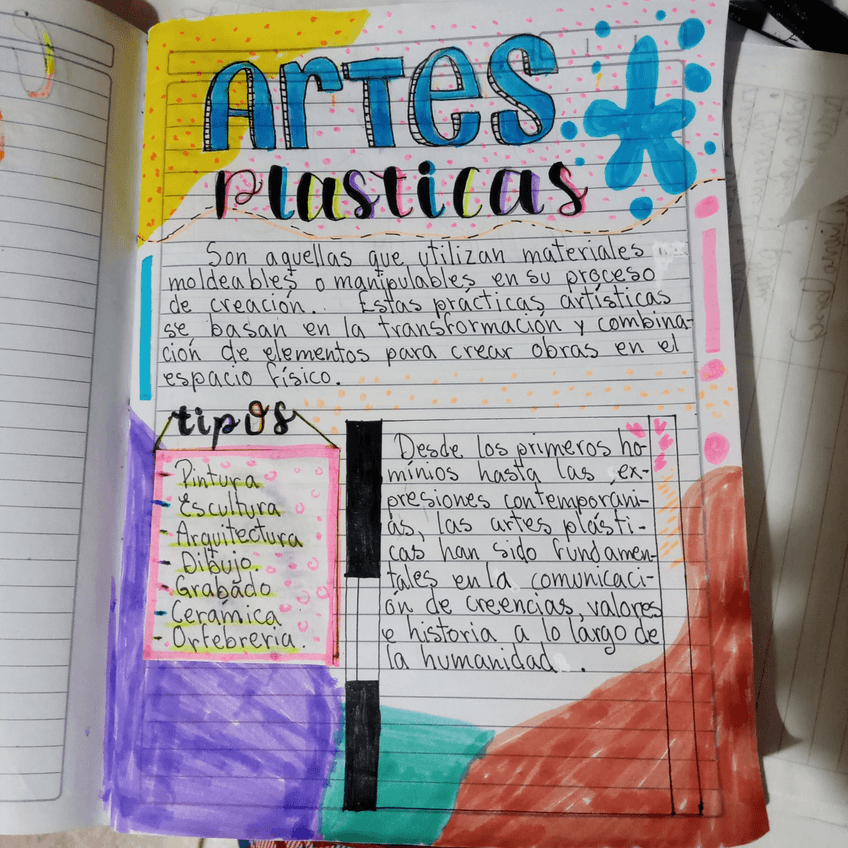 Artes
plasticas
Son aquellas que utilizan materiales
moldeables o manipulables en su proceso
de creación. Estas prácticas artísticas
se basan en la transformación y combina-
ción de elementos para crear obras en el
espacio físico.
tipos
- Pintura
- Escultura
- Arquitectura
- Dibujo.
- Grabado
- Ceramica
- Orfebreria.
Desde los primeros ho-
mínios hasta las ex-
presiones contemporani-
as, las artes plásti-
cas han sido fundamen-
tales en la comunicaci-
ón de creencias, valores
e historia a lo largo de
la humanidad.